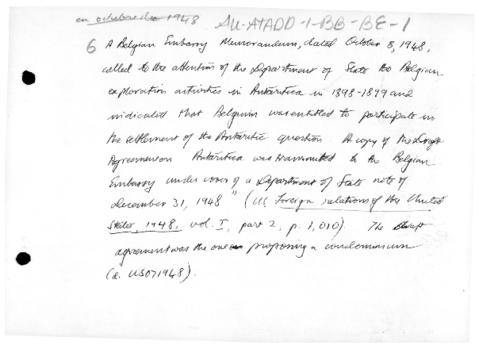 en octobre de 1948
AU-ATADD-1-BB-BE-1
6 A Belgian Embassy Memorandum, dated October 8, 1948,
called to the attention of the Department of State the Belgian
exploration activities in Antarctica in 1898-1899 and
indicated that Belgium was entitled to participate in
the settlement of the Antarctic question. A copy of the draft
Agreement on Antarctica was transmitted to the Belgian
Embassy under cover of a Department of State note of
december 31, 1948" (US Foreign relations of the United
States, 1948, vol. I, part 2, p. 1,010). The draft
agreement was the one proposing a condominium
(a. US071948).